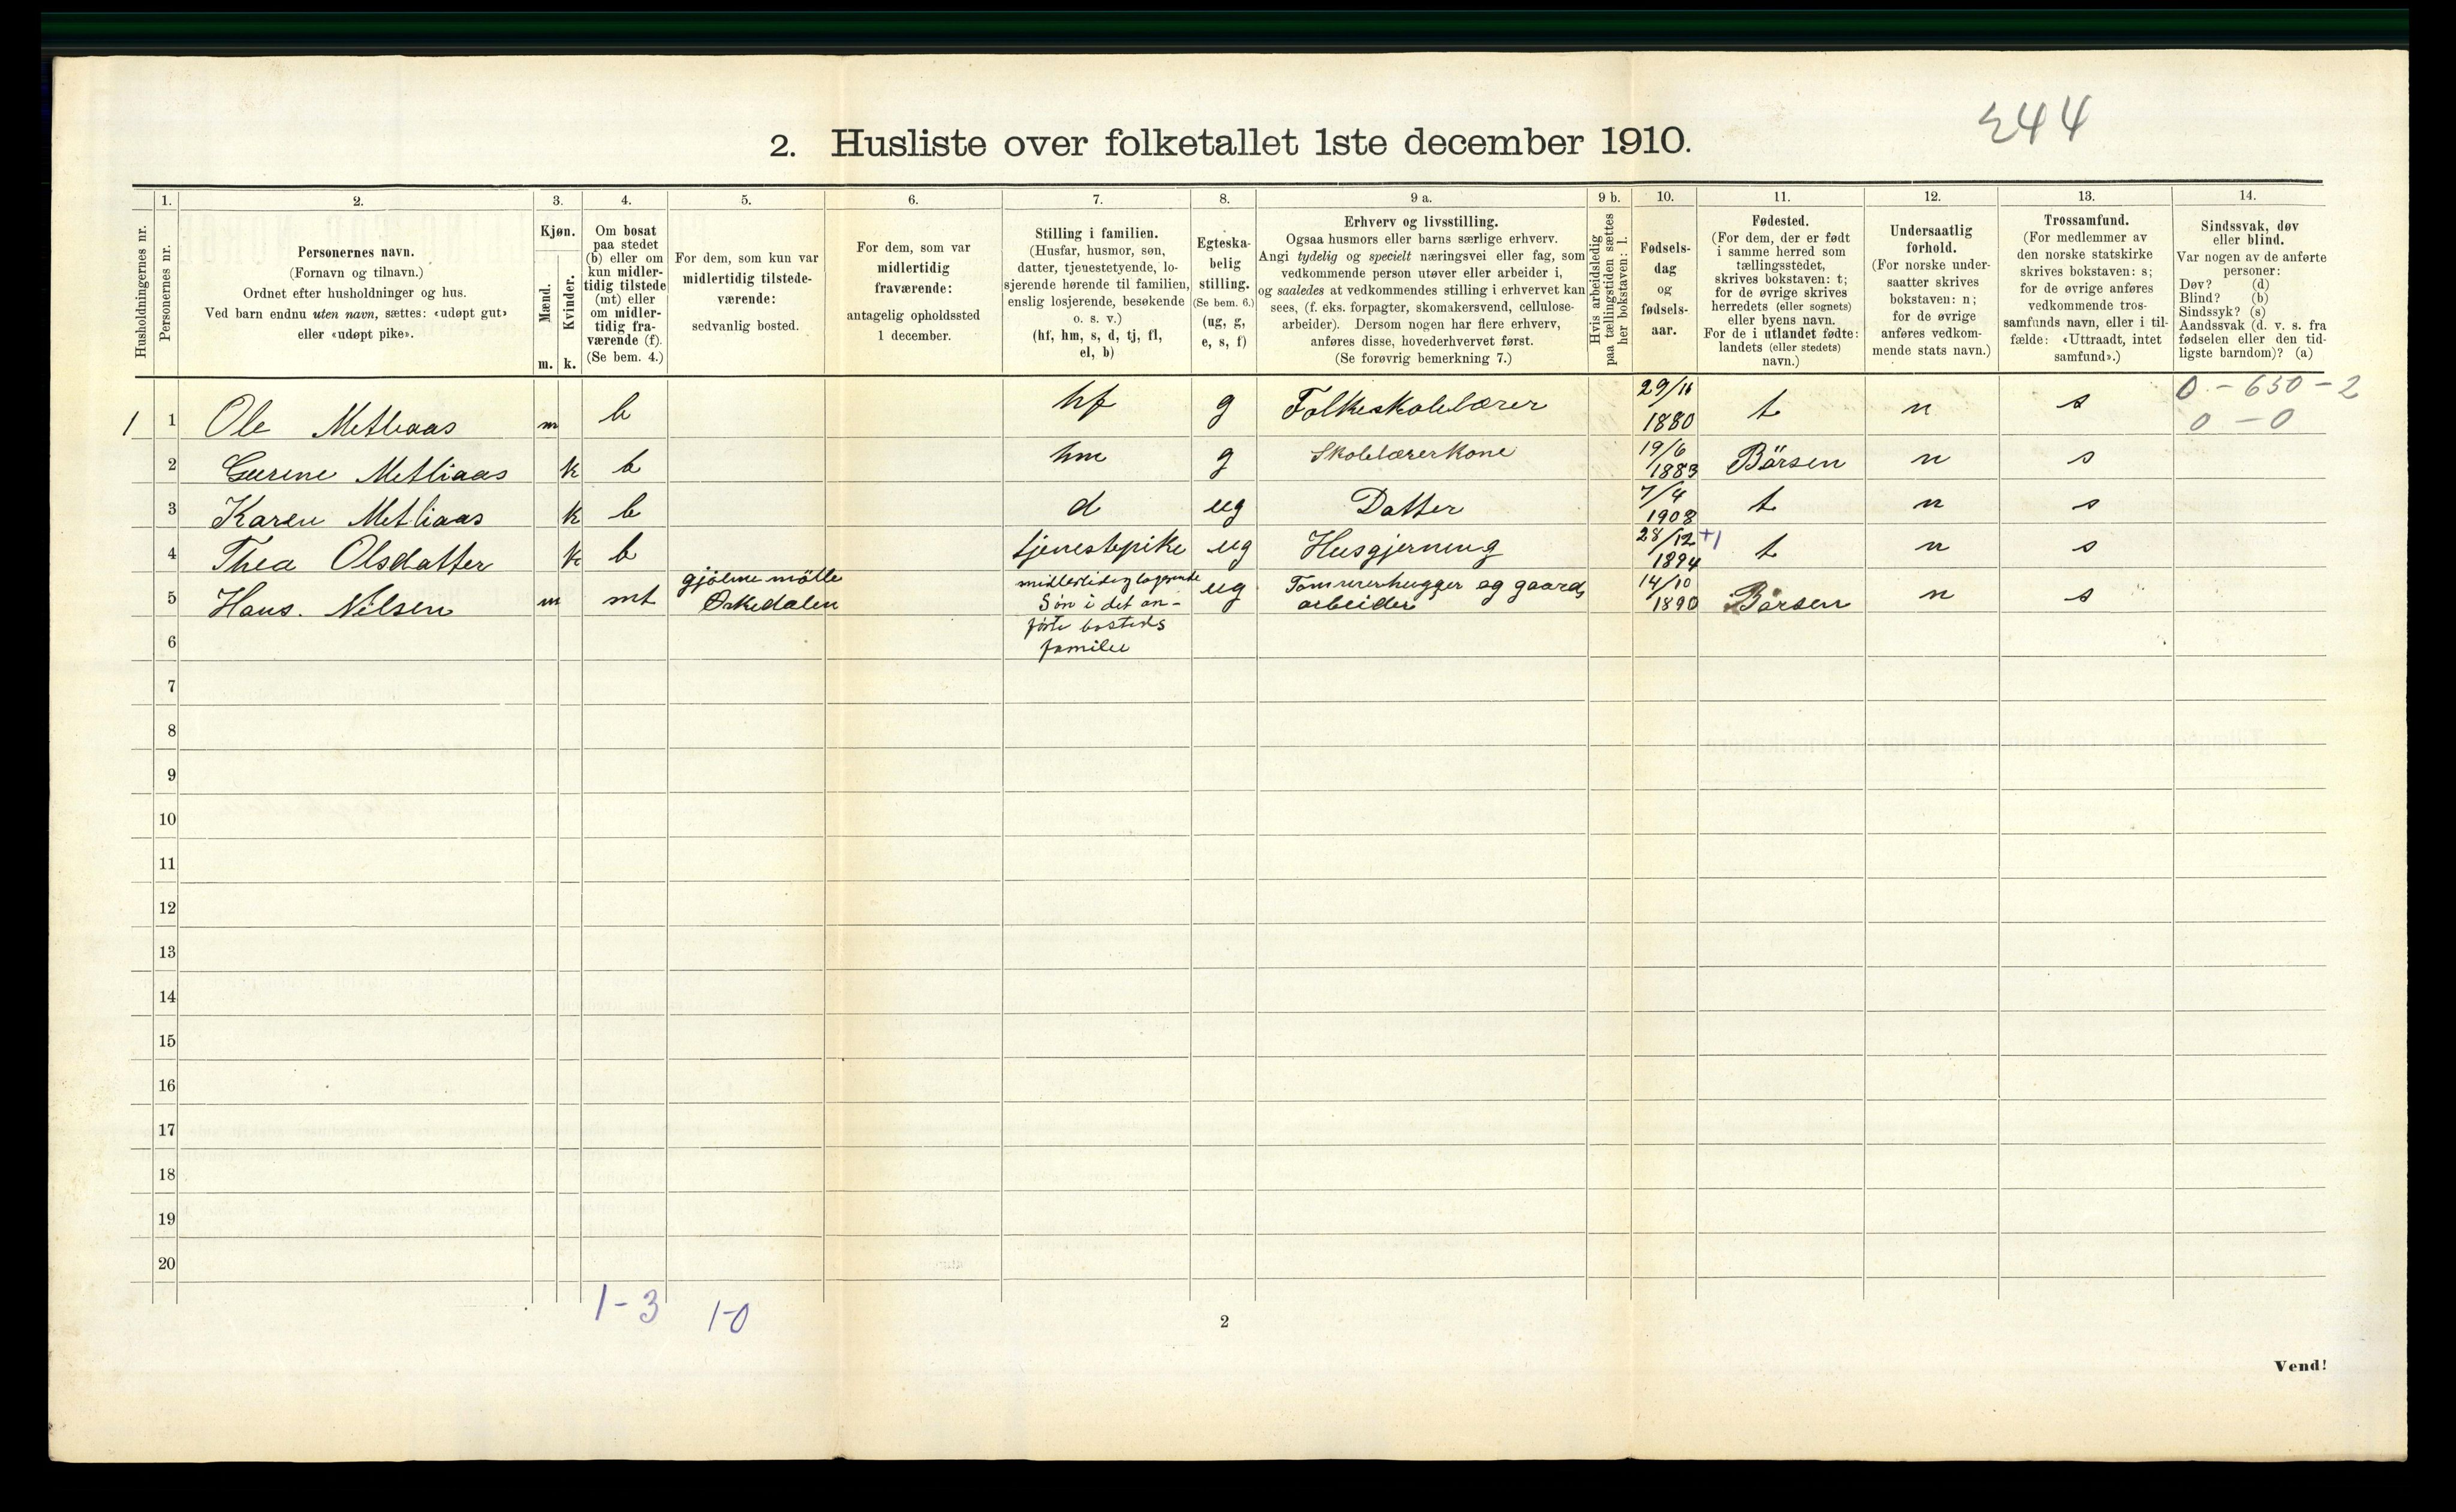 244
2. Husliste over folketallet 1ste december 1910.
1. 2. 3. 4. 5. 6. 7. 8. 9 a. 9 b. 10. 11. 12. 13. 14.
Husholdningernes nr.
Personernes nr.
Personernes navn.
(Fornavn og tilnavn.)
Ordnet efter husholdninger og hus.
Ved barn endnu uten navn, sættes: «udøpt gut»
eller «udøpt pike».
Kjøn.
Mænd.
Kvinder.
m. k.
Om bosat
paa stedet
(b) eller om
kun midler-
tidig tilstede
(mt) eller
om midler-
tidig fra-
værende (f).
(Se bem. 4.)
For dem, som kun var
midlertidig tilstede-
værende:
sedvanlig bosted.
For dem, som var
midlertidig
fraværende:
antagelig opholdssted
1 december.
Stilling i familien.
(Husfar, husmor, søn,
datter, tjenestetyende, lo-
sjerende hørende til familien,
enslig losjerende, besøkende
o. s. v.)
(hf, hm, s, d, tj, fl,
el, b)
Egteska-
belig
stilling.
(Se bem. 6.)
(ug, g,
e, s, f)
Erhverv og livsstilling.
Ogsaa husmors eller barns særlige erhverv.
Angi tydelig og specielt næringsvei eller fag, som
vedkommende person utøver eller arbeider i,
og saaledes at vedkommendes stilling i erhvervet kan
sees, (f. eks. forpagter, skomakersvend, cellulose-
arbeider). Dersom nogen har flere erhverv,
anføres disse, hovederhvervet først.
(Se forøvrig bemerkning 7.)
Hvis arbeidsledig
paa tællingstiden sættes
her bokstaven: l.
Fødsels-
dag
og
fødsels-
aar.
Fødested.
(For dem, der er født
i samme herred som
tællingsstedet,
skrives bokstaven: t;
for de øvrige skrives
herredets (eller sognets)
eller byens navn.
For de i utlandet fødte:
landets (eller stedets)
navn.)
Undersaatlig
forhold.
(For norske under-
saatter skrives
bokstaven: n;
for de øvrige
anføres vedkom-
mende stats navn.)
Trossamfund.
(For medlemmer av
den norske statskirke
skrives bokstaven: s;
for de øvrige anføres
vedkommende tros-
samfunds navn, eller i til-
fælde: «Uttraadt, intet
samfund».)
Sindssvak, døv
eller blind.
Var nogen av de anførte
personer:
Døv? (d)
Blind? (b)
Sindssyk? (s)
Aandssvak (d. v. s. fra
fødselen eller den tid-
ligste barndom)? (a)
1 1 Ole Metliaas m b hf g Folkeskolelærer 29/11 1880 t n s 0 - 650 - 2
0 - 0
2 Gurine Metliaas k b hm g Skolelærerkone 19/6 1883 Börsen n s
3 Karen Metliaas k b d ug Datter 7/4 1908 t n s
4 Thea Olsdatter k b tjenestepike ug Husgjerning 28/12 1894 +1 t n s
5 Hans. Nilsen m mt gjölme mölle
Orkedalen midlertidig logerende
Sön i det an-
förte bosteds
familie ug Tömmerhugger og gaards
arbeider 14/10 1890 Börsen n s
6
7
8
9
10
11
12
13
14
15
16
17
18
19
20
1-3 1-0
2
Vend!